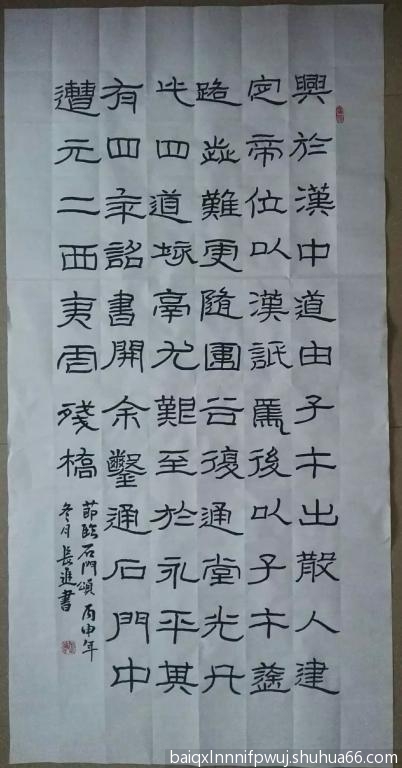 興於漢中道由子午出散入建
定帝位以漢詆焉後以子午塗
路歰難更隨圍谷復通堂光凡
此四道垓鬲尤艱至於永平其
有四年詔書開余鑿通石門中
遭元二西夷虐殘橋
節臨石門頌 丙申年
冬月長進書
baiqxlnnnifpwuj.shuhua66.com